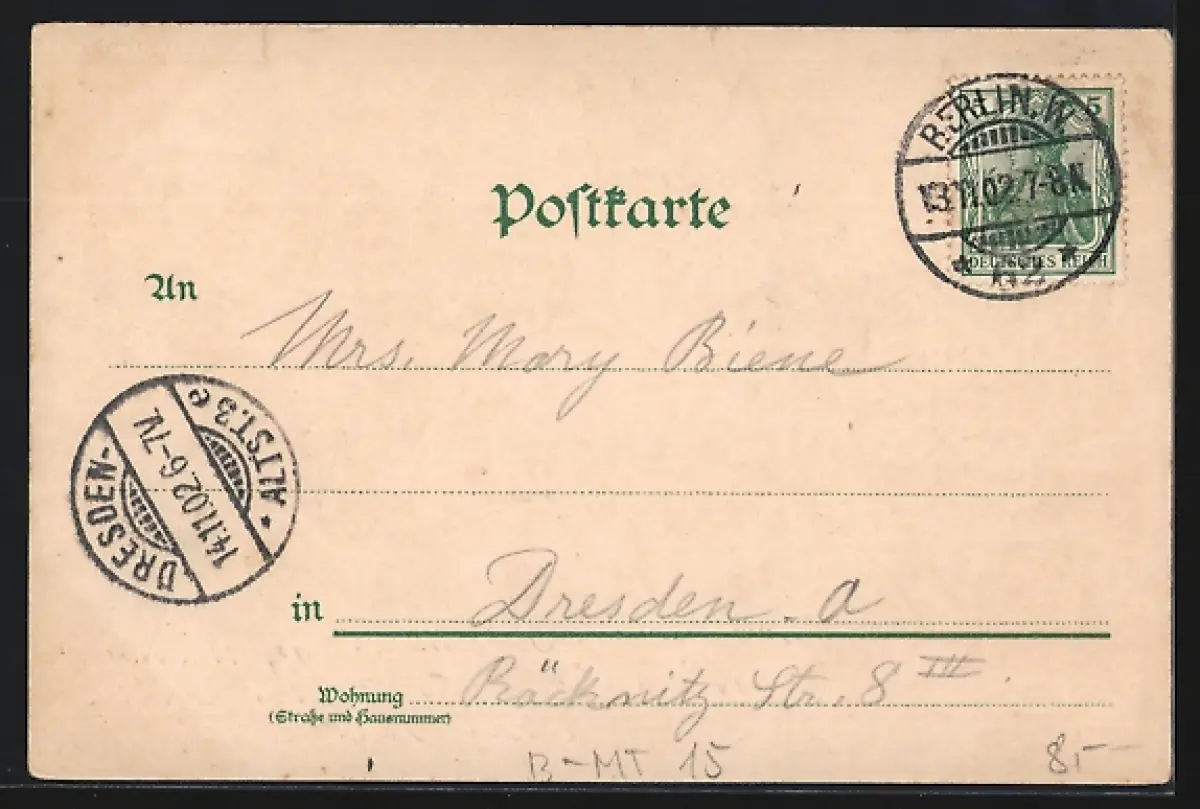 Postkarte
5
BERLIN.W.
13.11.02.7-8N.
* 62 *
DEUTSCHES REICH
An
Mrs. Mary Biene
DRESDEN-
14.11.02.6-7V.
* ALTST.3 e
in Dresden. a
Wohnung Räcknitz Str. 8 III
(Straße und Hausnummer)
B-MT 15
8,-